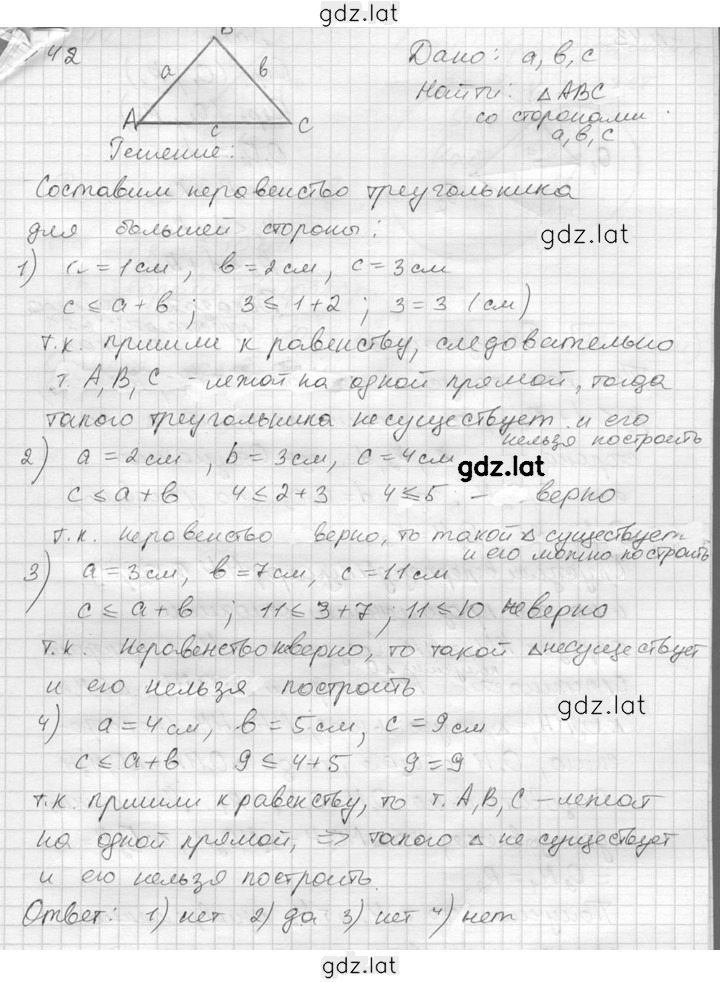 gdz.lat
42
B
a
в
A
c
C
Дано: а, в, с
Найти: △ABC
со сторонами
а, в, с
Решение:
Составим неравенство треугольника
для большей стороны:
gdz.lat
1) a = 1см, в = 2см, с = 3см
с ≤ а + в ; 3 ≤ 1+2 ; 3 = 3 (см)
т.к. пришли к равенству, следовательно
т. А, В, С – лежат на одной прямой, тогда
такого треугольника не существует и его
нельзя построить
2) а = 2см, b = 3см, с = 4см
gdz.lat
с ≤ а + в 4 ≤ 2+3 4 ≤ 5 – верно
т.к. неравенство верно, то такой △ существует
и его можно построить
3) а = 3см, в = 7см, с = 11см
с ≤ а + в ; 11 ≤ 3+7 , 11 ≤ 10 неверно
т.к. Неравенство неверно, то такой △ не существует
и его нельзя построить
gdz.lat
4) а = 4см, в = 5см, с = 9см
с ≤ а+в 9 ≤ 4+5 9 = 9
т.к. пришли к равенству, то т. А, В, С – лежат
на одной прямой, => такого △ не существует
и его нельзя построить.
Ответ: 1) нет 2) да 3) нет 4) нет
gdz.lat